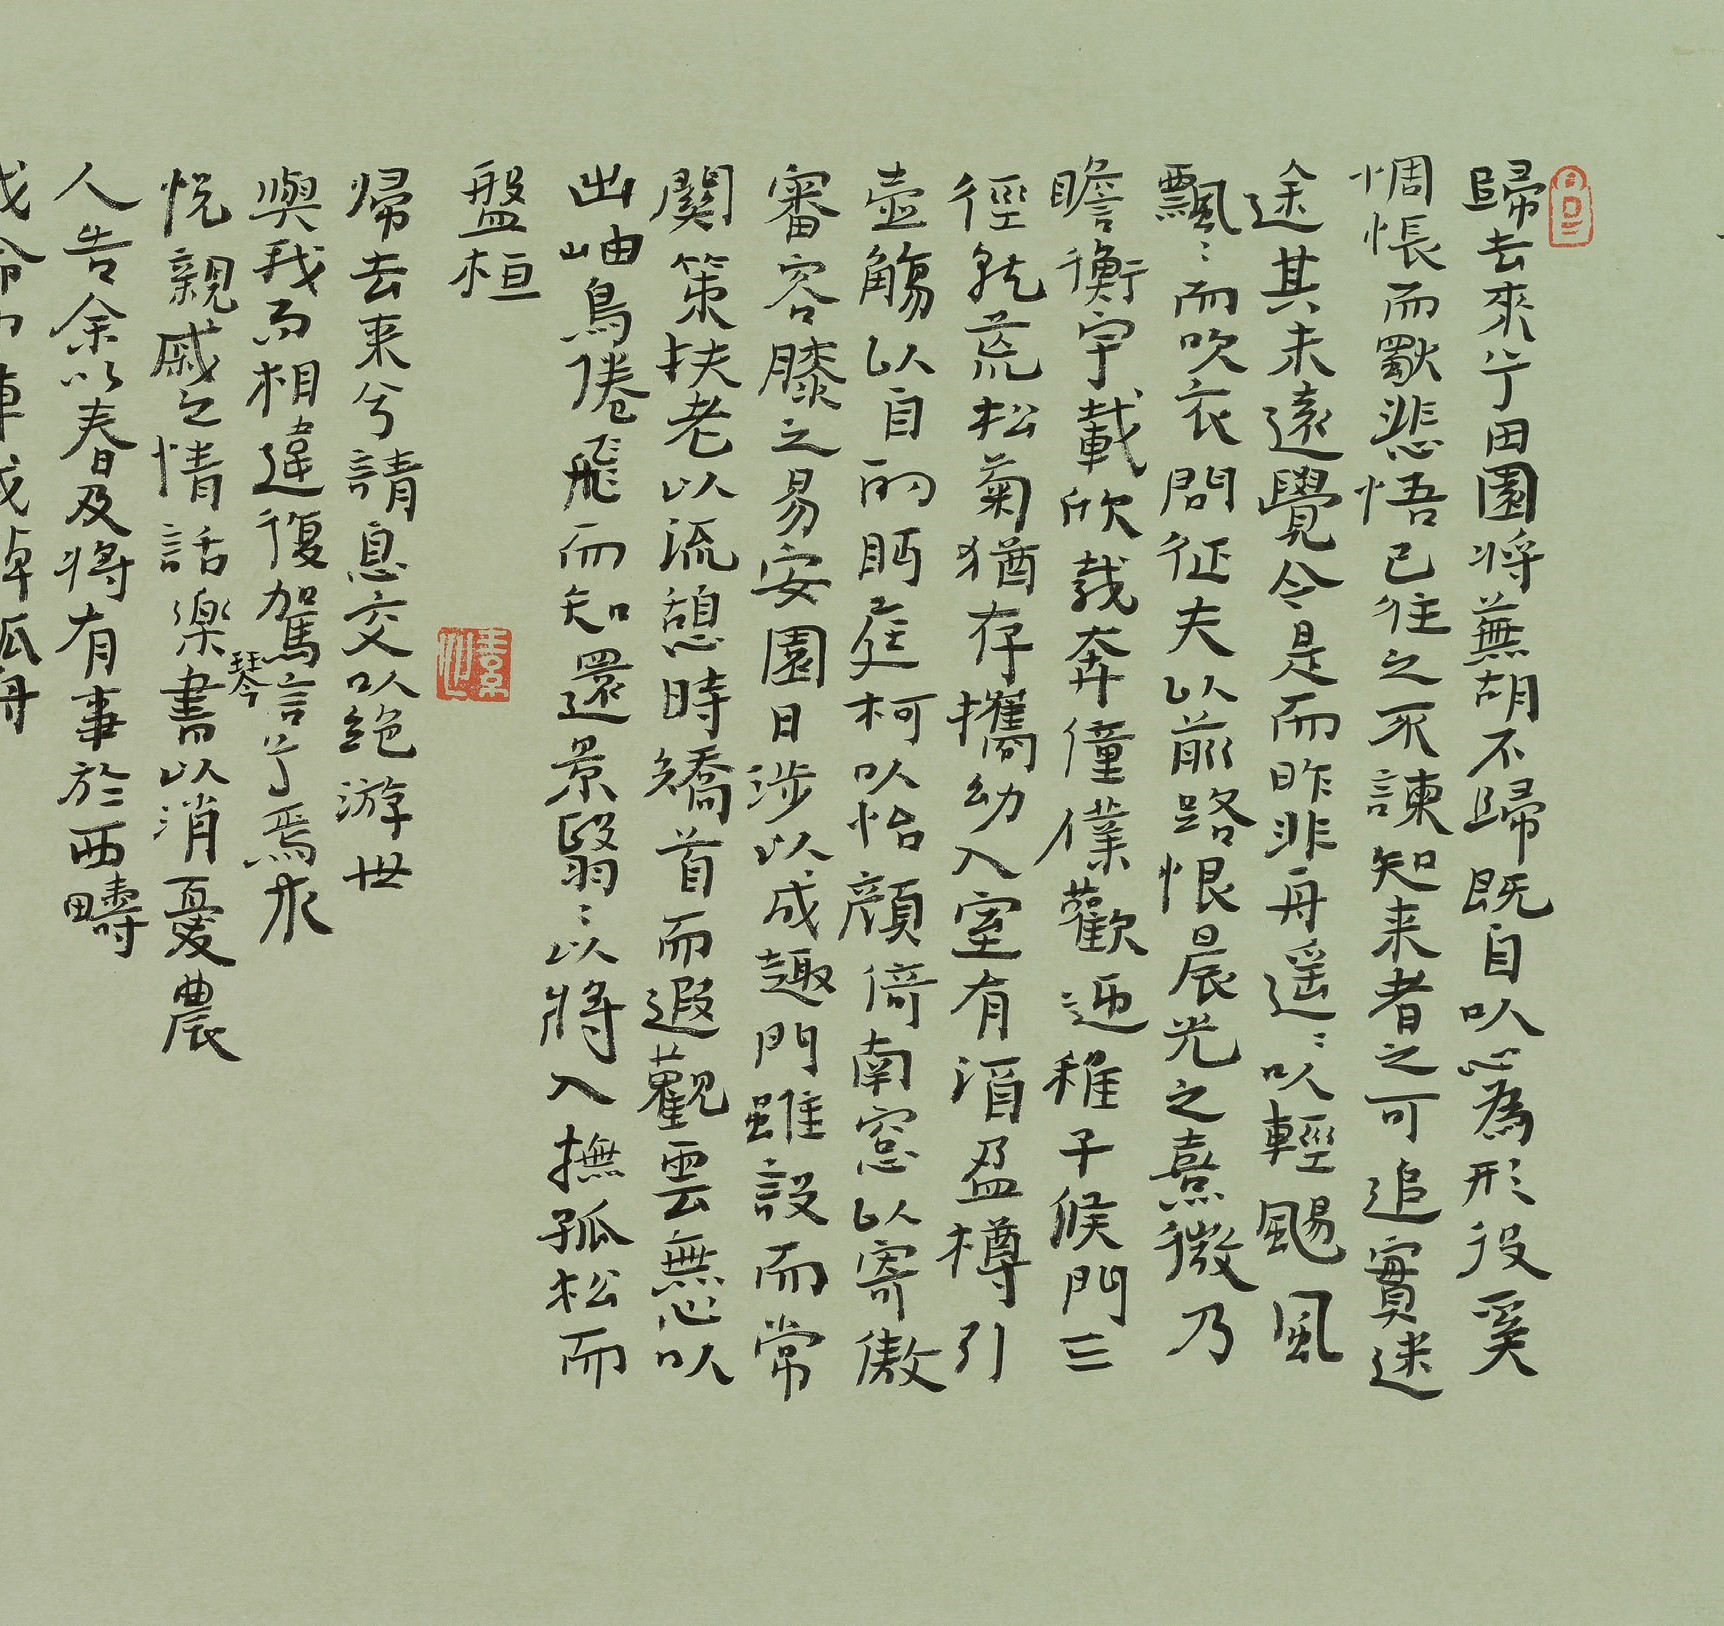 歸去來兮田園将蕪胡不歸既自以心為形役奚
惆悵而獨悲悟已往之不諫知来者之可追實迷
途其未遠覺今是而昨非舟遥〻以輕颺風
飄〻而吹衣問征夫以前路恨晨光之熹微乃
瞻衡宇載欣載奔僮僕歡迎稚子候門三
徑就荒松菊猶存攜幼入室有酒盈樽引
壺觴以自酌眄庭柯以怡顔倚南窓以寄傲
審容膝之易安園日涉以成趣門雖設而常
關策扶老以流憩時矯首而遐觀雲無心以
出岫鳥倦飛而知還景翳〻以將入撫孤松而
盤桓
帰去来兮請息交以絶游世
與我而相違復駕言兮焉求
悦親戚之情話楽琴書以消憂農
人告余以春及将有事於西疇
或命巾車或棹孤舟